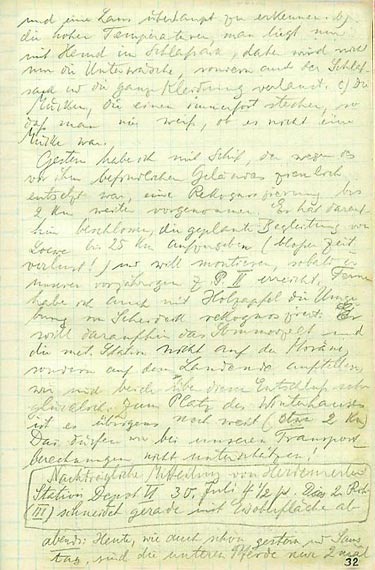 und eine Laus überhaupt zu erkennen. b)
die hohen Temperaturen, man liegt nur
mit Hemd im Schlafsack, dabei wird nicht
nur die Unterwäsche, sondern auch der Schlaf-
sack und die ganze Kleidung verlaust. c) die
Mücken, die einen immerfort stechen, so
daß man nie weiß, ob es nicht eine
Mücke war.
Gestern habe ich mit Schif, der wegen des
vor ihm befindlichen Geländes ziemlich
entsetzt war, eine Rekognoszierung bis
2 Km weiter vorgenommen. Er hat darauf-
hin beschlossen, die geplante Begleitung von
Loewe bis 25 Km aufzugeben (bloßer Zeit-
verlust!) und will montieren, sobald er
unseren vorjährigen P. II erreicht. Ferner
habe ich auch mit Holzapfel die Umge-
bung von Scheideck rekognosziert. Er
will daraufhin das Sommerzelt und
die met. Station nicht auf der Moräne
sondern auf dem Landende aufstellen,
wir sind beide über diesen Entschluß sehr
glücklich. Zum Platz des Winterhauses
ist es übrigens noch weit (etwa 2 Km)
Das dürfen wir bei unseren Transport-
berechnungen nicht unterschätzen!
Nachträgliche Mitteilung von
Station Depot 30. Juli 4 1/2 p. Das 2. Rohr
(III) schneidet gerade mit Eisoberfläche ab
abends: Heute, wie auch schon gestern und Sams
tag, sind die unteren Pferde nur 2 mal
32